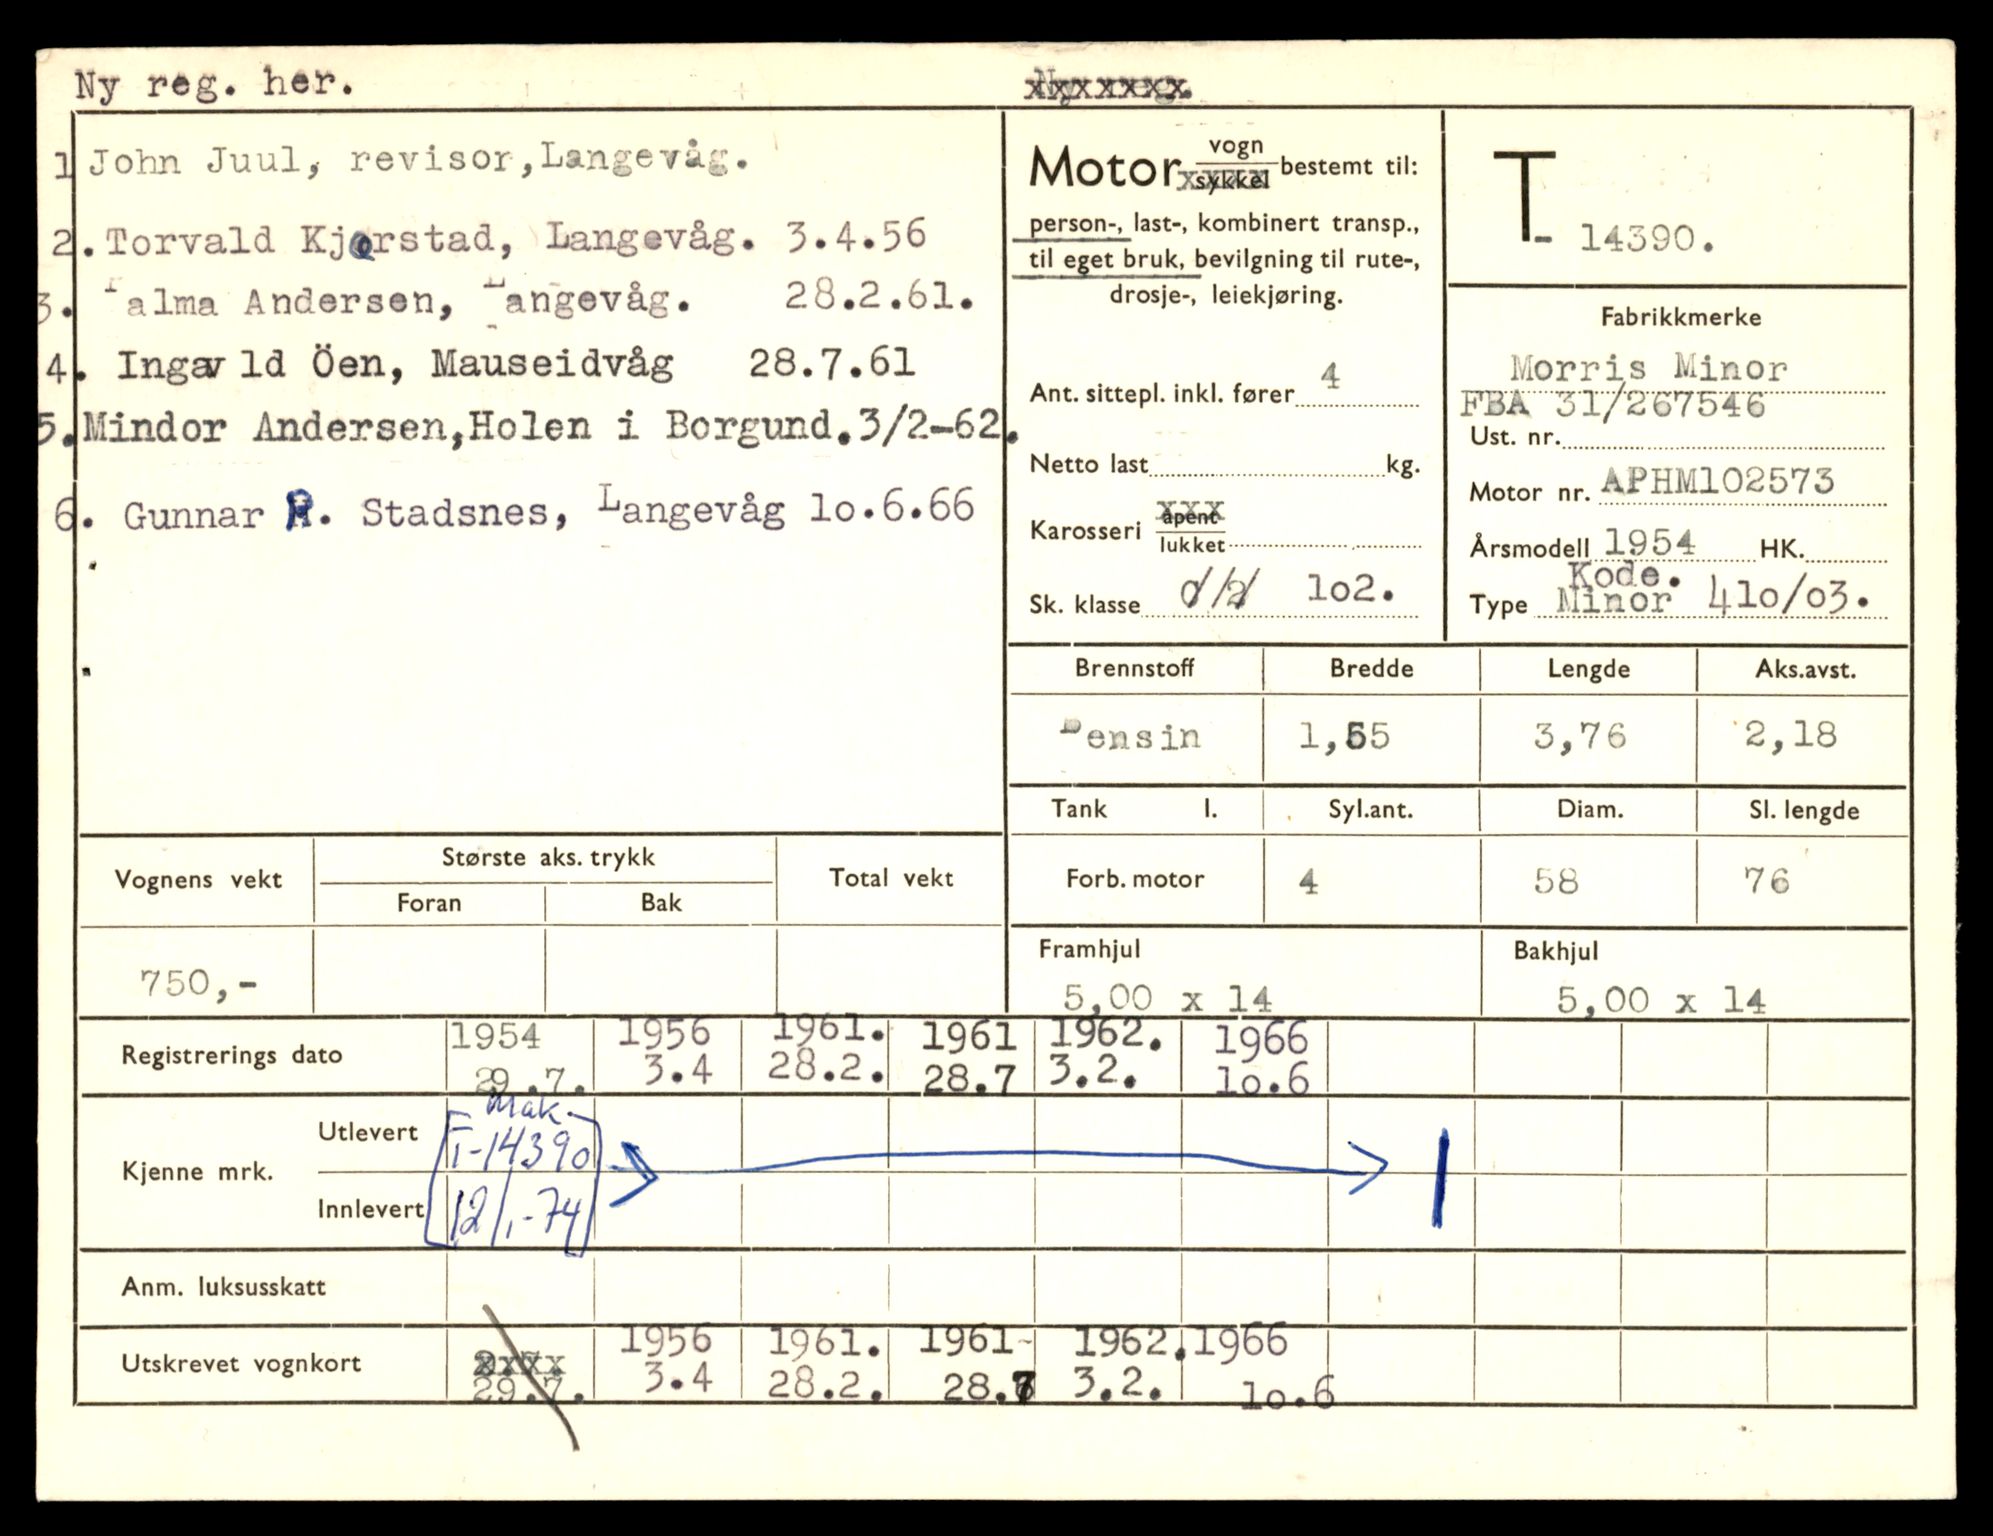 Ny reg. her.
1 John Juul, revisor, Langevåg.
2. Torvald Kjørstad, Langevåg. 3.4.56
3. Palma Andersen, Langevåg. 28.2.61.
4. Ingav ld Öen, Mauseidvåg 28.7.61
5. Mindor Andersen, Holen i Borgund. 3/2-62.
6. Gunnar R. Stadsnes, Langevåg 10.6.66
Motor vogn sykkel bestemt til:
person-, last-, kombinert transp.,
til eget bruk, bevilgning til rute-,
drosje-, leiekjøring.
Ant. sittepl. inkl. fører 4
Netto last kg.
Karosseri åpent
lukket
Sk. klasse 102.
T- 14390.
Fabrikkmerke
Morris Minor
FBA 31/267546
Ust. nr.
Motor nr. APHM102573
Årsmodell 1954 HK.
Kode.
Type Minor 410/03.
Brennstoff Bredde Lengde Aks.avst.
Bensin 1,55 3,76 2,18
Tank l. Syl.ant. Diam. Sl. lengde
Forb. motor 4 58 76
Framhjul Bakhjul
5,00 x 14 5,00 x 14
Vognens vekt Største aks. trykk Total vekt
Foran Bak
750,-
1954 1956 1961. 1961 1962. 1966
Registrerings dato
29.7. 3.4 28.2. 28.7 3.2. 10.6
Mak.
Kjenne mrk.
Utlevert T-14390
Innlevert 12/1-74
Anm. luksusskatt
1956 1961. 1961 1962. 1966
Utskrevet vognkort
29.7. 3.4 28.2. 28.7 3.2. 10.6